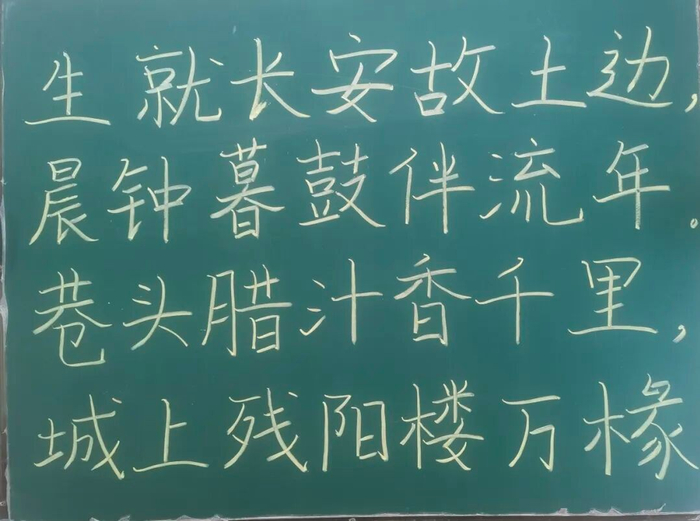 生就长安故土边，
晨钟暮鼓伴流年。
巷头腊汁香千里，
城上残阳楼万椽